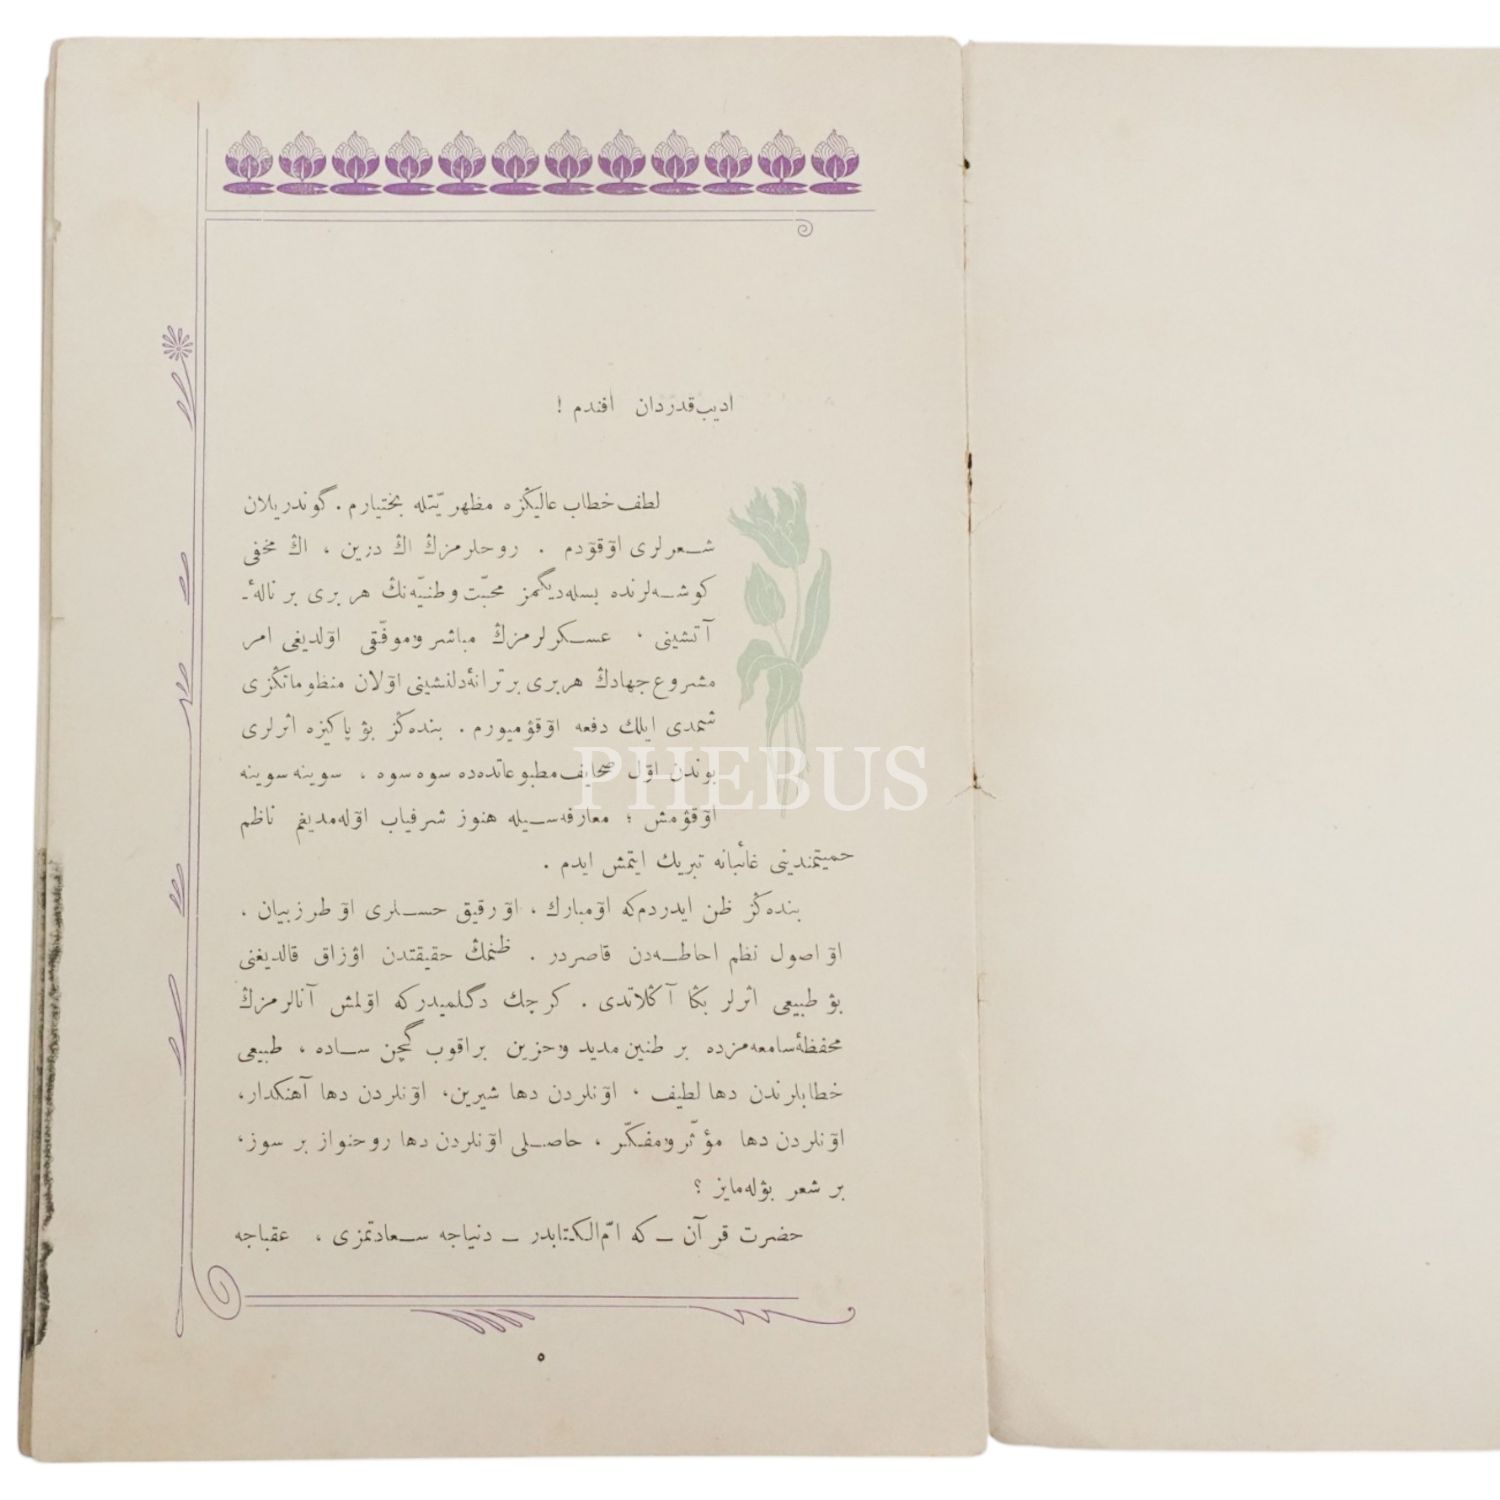 ادیب قدردان افندم !
لطف خطاب عالیڭزه مظهریّتله بختیارم . گوندریلان
شعرلری اوٓقوٓدم . روحلرمزڭ اڭ درین ، اڭ مخفی
کوشه‌لرنده بسله‌دیگمز محبّت وطنیّه‌نڭ هر بری بر نالهٔ
آتشینی ، عسکرلرمزڭ مباشر و موفّقی اوٓلدیغی امر
مشروع جهادڭ هر بری بر ترانهٔ دلنشینی اوٓلان منظوماتڭزی
شمدی ایلك دفعه اوٓقوٓمیورم . بنده‌ڭز بوٓ پاکیزه اثرلری
بوندن اوّل صحایف مطبوعاتده‌ده سوه سوه ، سوینه سوینه
اوٓقوٓمش ؛ معارفه‌سیله هنوز شرفیاب اوٓله‌مدیغم ناظم
حمیتمندینی غائبانه تبریك ایتمش ایدم .
بنده‌ڭز ظن ایدردم که اوٓ مبارك ، اوٓ رقیق حسلری اوٓ طرز بیان ،
اوٓ اصول نظم احاطه‌دن قاصردر . ظنمڭ حقیقتدن اوٓزاق قالدیغنی
بوٓ طبیعی اثرلر بڭا آڭلاتدی . کرچك دگلمیدر که اوٓلمش آنالرمزڭ
محفظهٔ سامعه‌مزده بر طنین مدید و حزین براقوب گچن ساده ، طبیعی
خطابلرندن دها لطیف ، اوٓنلردن دها شیرین، اوٓنلردن دها آهنکدار،
اوٓنلردن دها مؤثّر و مفکّر ، حاصلی اوٓنلردن دها روحنواز بر سوز،
بر شعر بوٓله‌مایز ؟
حضرت قرآن ــ که امّ الکتابدر ــ دنیاجه سعادتمزی ، عقباجه
٥
PHEBUS